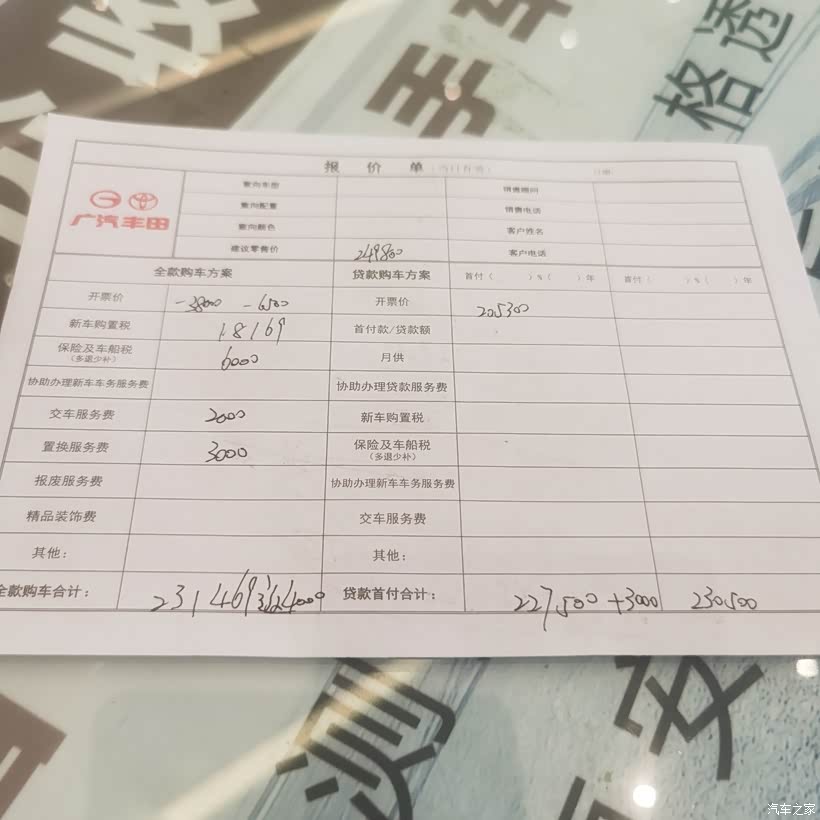 收
手
车
格
透
报 价 单
广汽丰田
意向车型
销售顾问
意向配置
销售电话
意向颜色
客户姓名
建议零售价 249800
客户电话
全款购车方案 贷款购车方案 首付( )%( )年 首付( )%( )年
开票价 -38000 -6500 开票价 205300
新车购置税 18169 首付款/贷款额
保险及车船税 6000 月供
(多退少补)
协助办理新车车务服务费 协助办理贷款服务费
交车服务费 2000 新车购置税
置换服务费 3000 保险及车船税
(多退少补)
报废服务费 协助办理新车车务服务费
精品装饰费 交车服务费
其他: 其他:
全款购车合计: 231469 贷款首付合计: 227500 +3000 230500
测
安
汽车之家